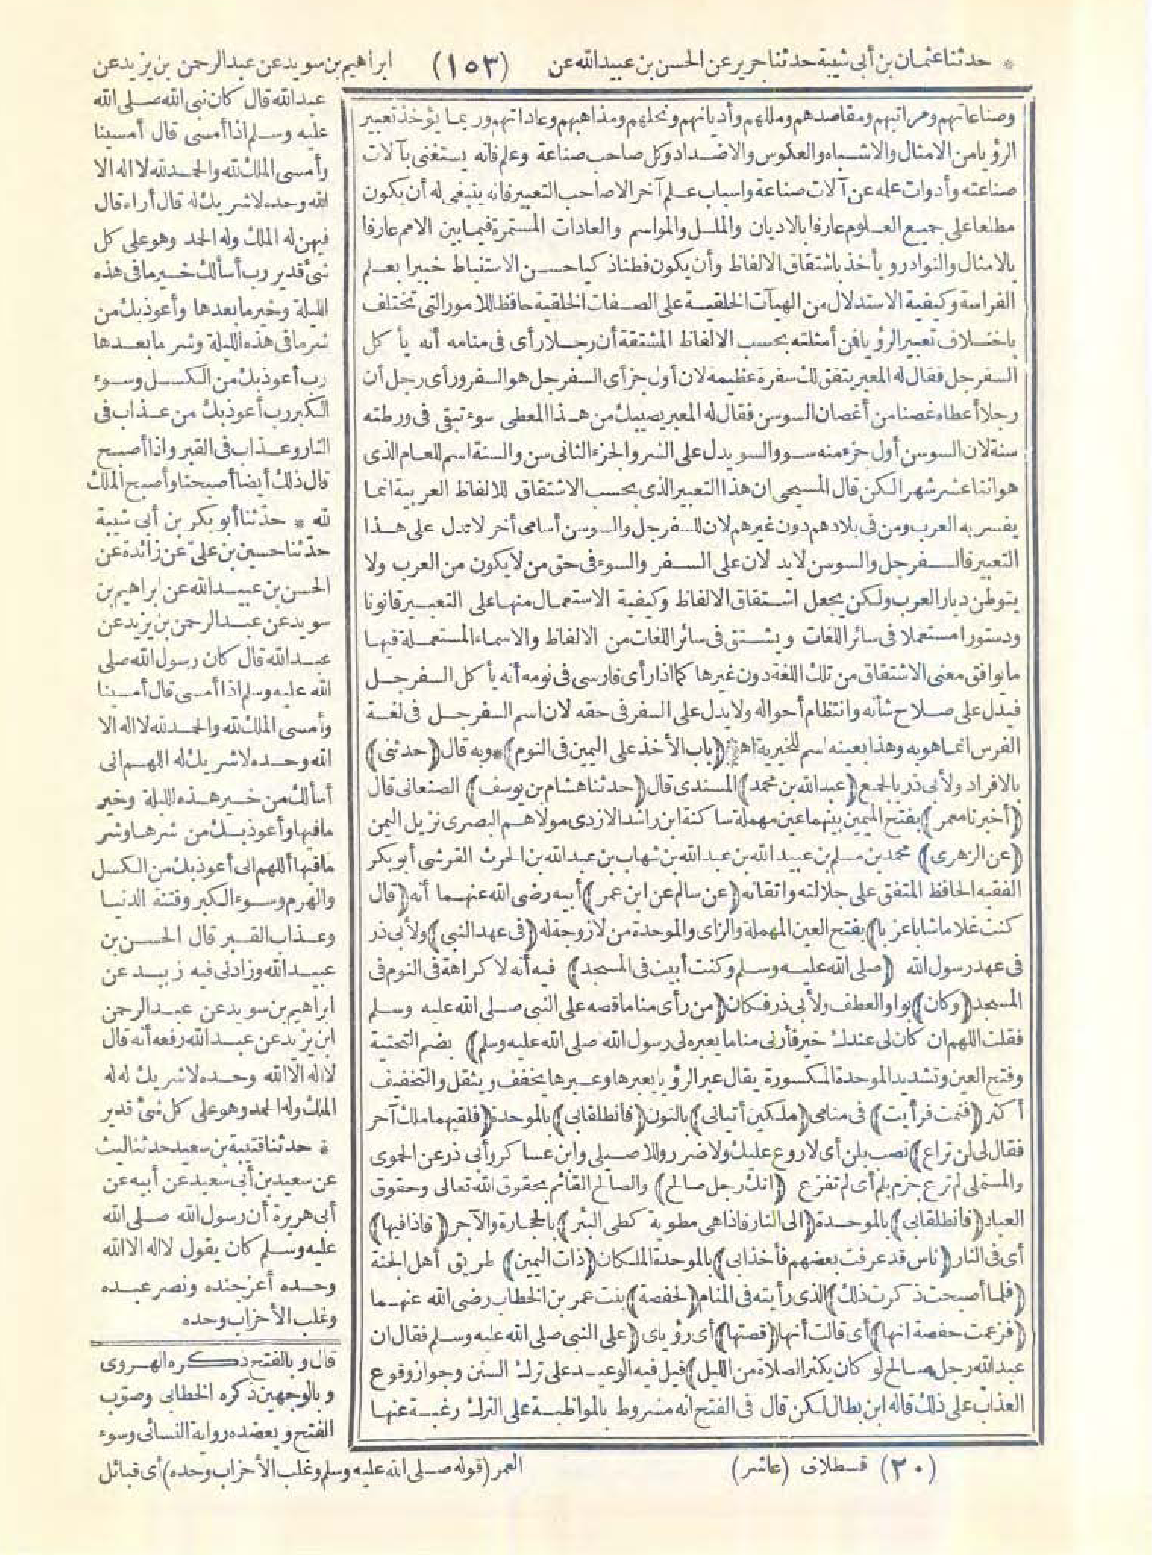 * حدثنا عثمان بن أبي شيبة حدثنا جرير عن الحسن بن عبيد الله عن (١٥٣) ابراهيم بن سويد عن عبد الرحمن بن يزيد عن
وصناعاتهم ومراتبهم ومقاصدهم ومللهم وأديانهم ونحلهم ومذاهبهم وعاداتهم وربما يؤخذ تعبير
الرؤيا من الامثال والاشباه والعكوس والاضداد وكل صاحب صناعة وعلم فانه يستغنى بآلات
صناعته وأدوات علمه عن آلات صناعة وأسباب علم آخر الاصاحب التعبير فانه ينبغى له أن يكون
مطلعا على جميع العلوم عارفا بالاديان والملل والمواسم والعادات المستمرة فيما بين الامم عارفا
بالامثال والنوادر و يأخذ باشتقاق الالفاظ وأن يكون فطنا ذكيا حسن الاستنباط خبيرا بعلم
الفراسة وكيفية الاستدلال من الهيآت الخلقية على الصفات الخلقية حافظا للامور التى تختلف
باختلاف تعبير الرؤيا فمن أمثلته بحسب الالفاظ المشتقة أن رجلا رأى فى منامه أنه يأكل
السفرجل فقال له المعبر يتفق لك سفرة عظيمة لان أول جزأى السفرجل هو السفر ورأى رجل أن
رجلا أعطاه غصنا من أغصان السوسن فقال له المعبر يصيبك من هذا المعطى سوء تبقى فى ورطته
سنة لان السوسن أول جزء منه سوء والسوء يدل على الشر والجزء الثانى سن والسنة اسم للعام الذى
هو اثنا عشر شهرا لكن قال المسيحى ان هذا التعبير الذى بحسب الاشتقاق للالفاظ العربية انما
يفسر به العرب ومن فى بلادهم دون غيرهم لان للسفرجل والسوسن أسامى أخر لا تدل على هذا
التعبير فالسفرجل والسوسن لا يدلان على السفر والسوء فى حق من لا يكون من العرب ولا
يتوطن ديار العرب ولكن يجعل اشتقاق الالفاظ وكيفية الاستعمال منها على التعبير قانونا
ودستورا مستعملا فى سائر اللغات ويشتق فى سائر اللغات من الالفاظ والاسماء المستعملة فيها
ما يوافق معنى الاشتقاق من تلك اللغة دون غيرها كما اذا رأى فارسى فى نومه أنه يأكل السفرجل
فيدل على صلاح شأنه وانتظام أحواله ولا يدل على السفر فى حقه لان اسم السفرجل فى لغة
الفرس انما هو به وهذا بعينه اسم للخيرية اه (باب الأخذ على اليمين فى النوم) * وبه قال (حدثنى)
بالافراد ولأبى ذر بالجمع (عبد الله بن محمد) المسندى قال (حدثنا هشام بن يوسف) الصنعانى قال
(أخبرنا معمر) بفتح الميمين بينهما عين مهملة ساكنة ابن راشد الازدى مولاهم البصرى نزيل اليمن
(عن الزهرى) محمد بن مسلم بن عبيد الله بن عبد الله بن شهاب بن عبد الله بن الحرث القرشى أبو بكر
الفقيه الحافظ المتفق على جلالته واتقانه (عن سالم عن ابن عمر) أبيه رضى الله عنهما أنه (قال
كنت غلاما شابا عزبا) بفتح العين المهملة والزاى والموحدة من لا زوجة له (فى عهد النبى) ولأبى ذر
فى عهد رسول الله (صلى الله عليه وسلم وكنت أبيت فى المسجد) فيه أنه لا كراهة فى النوم فى
المسجد (وكان) بواو العطف ولأبى ذر فكان (من رأى مناما قصه على النبى صلى الله عليه وسلم
فقلت اللهم ان كان لى عندك خير فأرنى مناما يعبره لى رسول الله صلى الله عليه وسلم) بضم التحتية
وفتح العين وتشديد الموحدة المكسورة يقال عبر الرؤيا يعبرها وعبرها يخفف ويثقل والتخفيف
أكثر (فنمت فرأيت) فى منامى (ملكين أتيانى) بالنون (فانطلقا بى) بالموحدة (فلقيهما ملك آخر
فقال لى لن تراع) نصب بلن أى لا روع عليك ولا ضرر وللاصيلى وابن عساكر وأبى ذر عن الحموى
والمستملى لم ترع جزم بلم أى لم تفزع (انك رجل صالح) والصالح القائم بحقوق الله تعالى وحقوق
العباد (فانطلقا بى) بالموحدة (الى النار فاذا هى مطوية كطى البئر) بالحجارة والآجر (فاذا فيها)
أى فى النار (ناس قد عرفت بعضهم فأخذا بى) بالموحدة الملكان (ذات اليمين) طريق أهل الجنة
(فلما أصبحت ذكرت ذلك) الذى رأيته فى المنام (لحفصة) بنت عمر بن الخطاب رضى الله عنهما
(فزعمت حفصة انها) أى قالت أنها (قصتها) أى رؤياى (على النبى صلى الله عليه وسلم فقال ان
عبد الله رجل صالح لو كان يكثر الصلاة من الليل) قيل فيه الوعيد على ترك السنن وجواز وقوع
العذاب على ذلك قاله ابن بطال لكن قال فى الفتح انه مشروط بالمواظبة على الترك رغبة عنها
عبد الله قال كان نبى الله صلى الله
عليه وسلم اذا أمسى قال أمسينا
وأمسى الملك لله والحمد لله لا اله الا
الله وحده لا شريك له قال أراه قال
فيهن له الملك وله الحمد وهو على كل
شئ قدير رب أسألك خير ما فى هذه
الليلة وخير ما بعدها وأعوذ بك من
شر ما فى هذه الليلة وشر ما بعدها
رب أعوذ بك من الكسل وسوء
الكبر رب أعوذ بك من عذاب فى
النار وعذاب فى القبر واذا أصبح
قال ذلك أيضا أصبحنا وأصبح الملك
لله * حدثنا أبو بكر بن أبى شيبة
حدثنا حسين بن على عن زائدة عن
الحسن بن عبيد الله عن ابراهيم بن
سويد عن عبد الرحمن بن يزيد عن
عبد الله قال كان رسول الله صلى
الله عليه وسلم اذا أمسى قال أمسينا
وأمسى الملك لله والحمد لله لا اله الا
الله وحده لا شريك له اللهم انى
أسألك من خير هذه الليلة وخير
ما فيها وأعوذ بك من شرها وشر
ما فيها اللهم انى أعوذ بك من الكسل
والهرم وسوء الكبر وفتنة الدنيا
وعذاب القبر قال الحسن بن
عبيد الله وزادنى فيه زبيد عن
ابراهيم بن سويد عن عبد الرحمن
ابن يزيد عن عبد الله رفعه أنه قال
لا اله الا الله وحده لا شريك له له
الملك وله الحمد وهو على كل شئ قدير
* حدثنا قتيبة بن سعيد حدثنا ليث
عن سعيد بن أبى سعيد عن أبيه عن
أبى هريرة أن رسول الله صلى الله
عليه وسلم كان يقول لا اله الا الله
وحده أعز جنده ونصر عبده
وغلب الأحزاب وحده
قال و بالفتح ذكره الهروى
و بالوجهين ذكره الخطابى وصوب
الفتح و يعضده رواية النسائى وسوء
العمر (قوله صلى الله عليه وسلم وغلب الأحزاب وحده) أى قبائل
(٢٠) قسطلانى (عاشر)